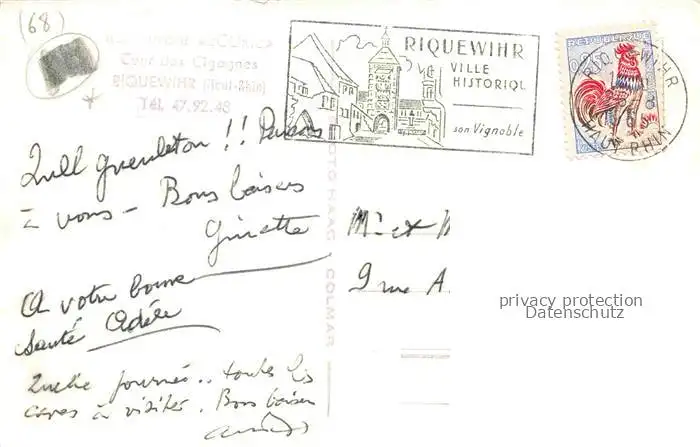 (68)
Cour des Cigognes
RIQUEWIHR (Haut-Rhin)
Tél. 47.92.48
RIQUEWIHR
VILLE
HISTORIQUE
son Vignoble
REPUBLIQUE
RIQUEWIHR
HAUT-RHIN
Quel gueuleton !! Pensons
à vous - Bons baisers
Ginette
A votre bonne
santé Adèle
Quelle journée .. toutes les
caves à visiter. Bons baisers
PHOTO HAAG COLMAR
Mr et M
9 rue A
privacy protection
Datenschutz